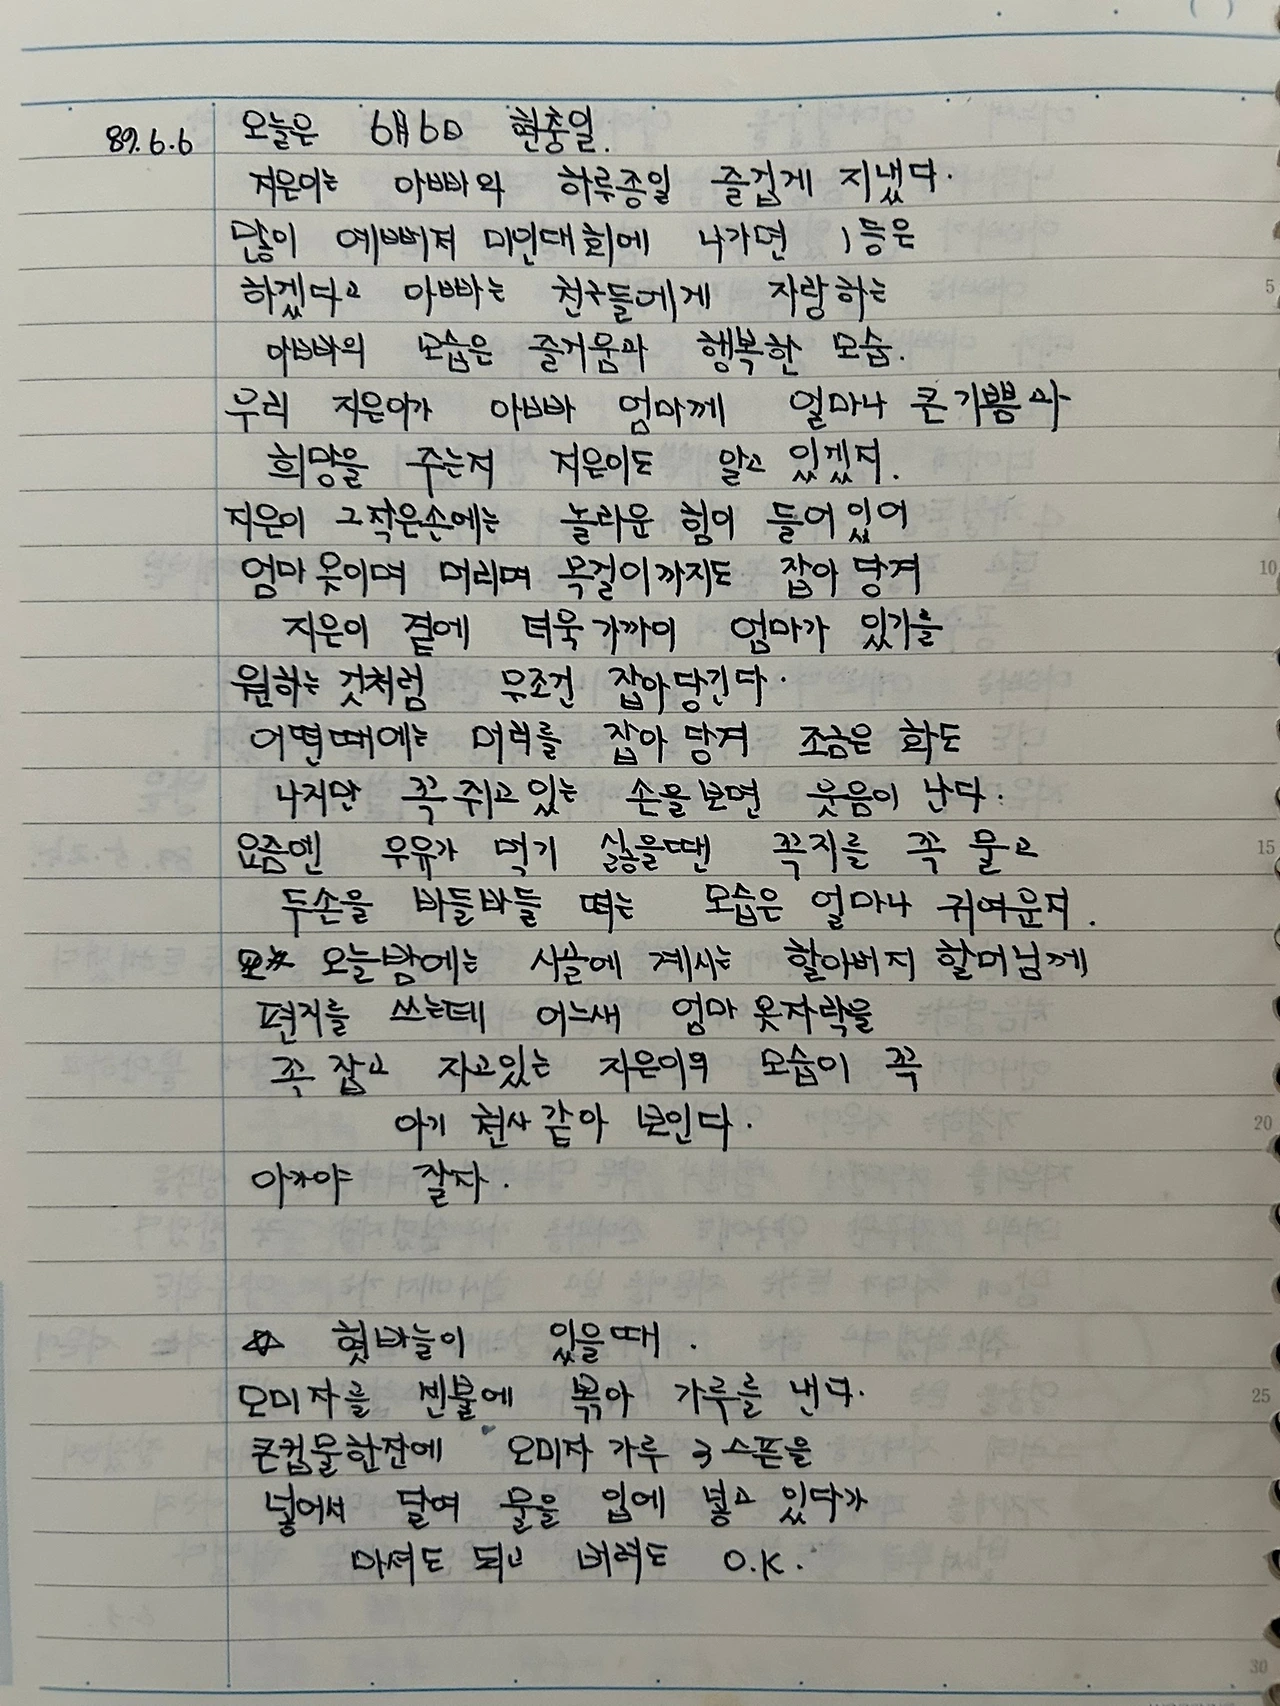 89.6.6 오늘은 6月6日 현충일.
지은이는 아빠와 하루종일 즐겁게 지냈다.
많이 예뻐져 미인대회에 나가면 1등은
하겠다고 아빠는 친구들에게 자랑하는
아빠의 모습은 즐거움과 행복한 모습.
우리 지은이가 아빠 엄마께 얼마나 큰 기쁨과
희망을 주는지 지은이도 알고 있겠지.
지은이 그 작은손에는 놀라운 힘이 들어있어
엄마 옷이며 머리며 목걸이까지도 잡아 당겨
지은이 곁에 더욱 가까이 엄마가 있기를
원하는 것처럼 무조건 잡아당긴다.
어떤때에는 머리를 잡아 당겨 조금은 화도
나지만 꼭 쥐고 있는 손을보면 웃음이 난다.
요즘엔 우유가 먹기 싫을땐 꼭지를 꼭 물고
두손을 바들바들 떠는 모습은 얼마나 귀여운지.
오늘밤에는 시골에 계시는 할아버지 할머님께
편지를 쓰는데 어느새 엄마 옷자락을
꼭 잡고 자고있는 지은이의 모습이 꼭
아기 천사 같아 보인다.
아가야 잘자.
☆ 혓바늘이 있을때.
오미자를 빈불에 볶아 가루를 낸다.
큰컵물한잔에 오미자 가루 3스픈을
넣어서 달여 물을 입에 넣고 있다가
마셔도 되고 버려도 O.K.
5
10
15
20
25
30